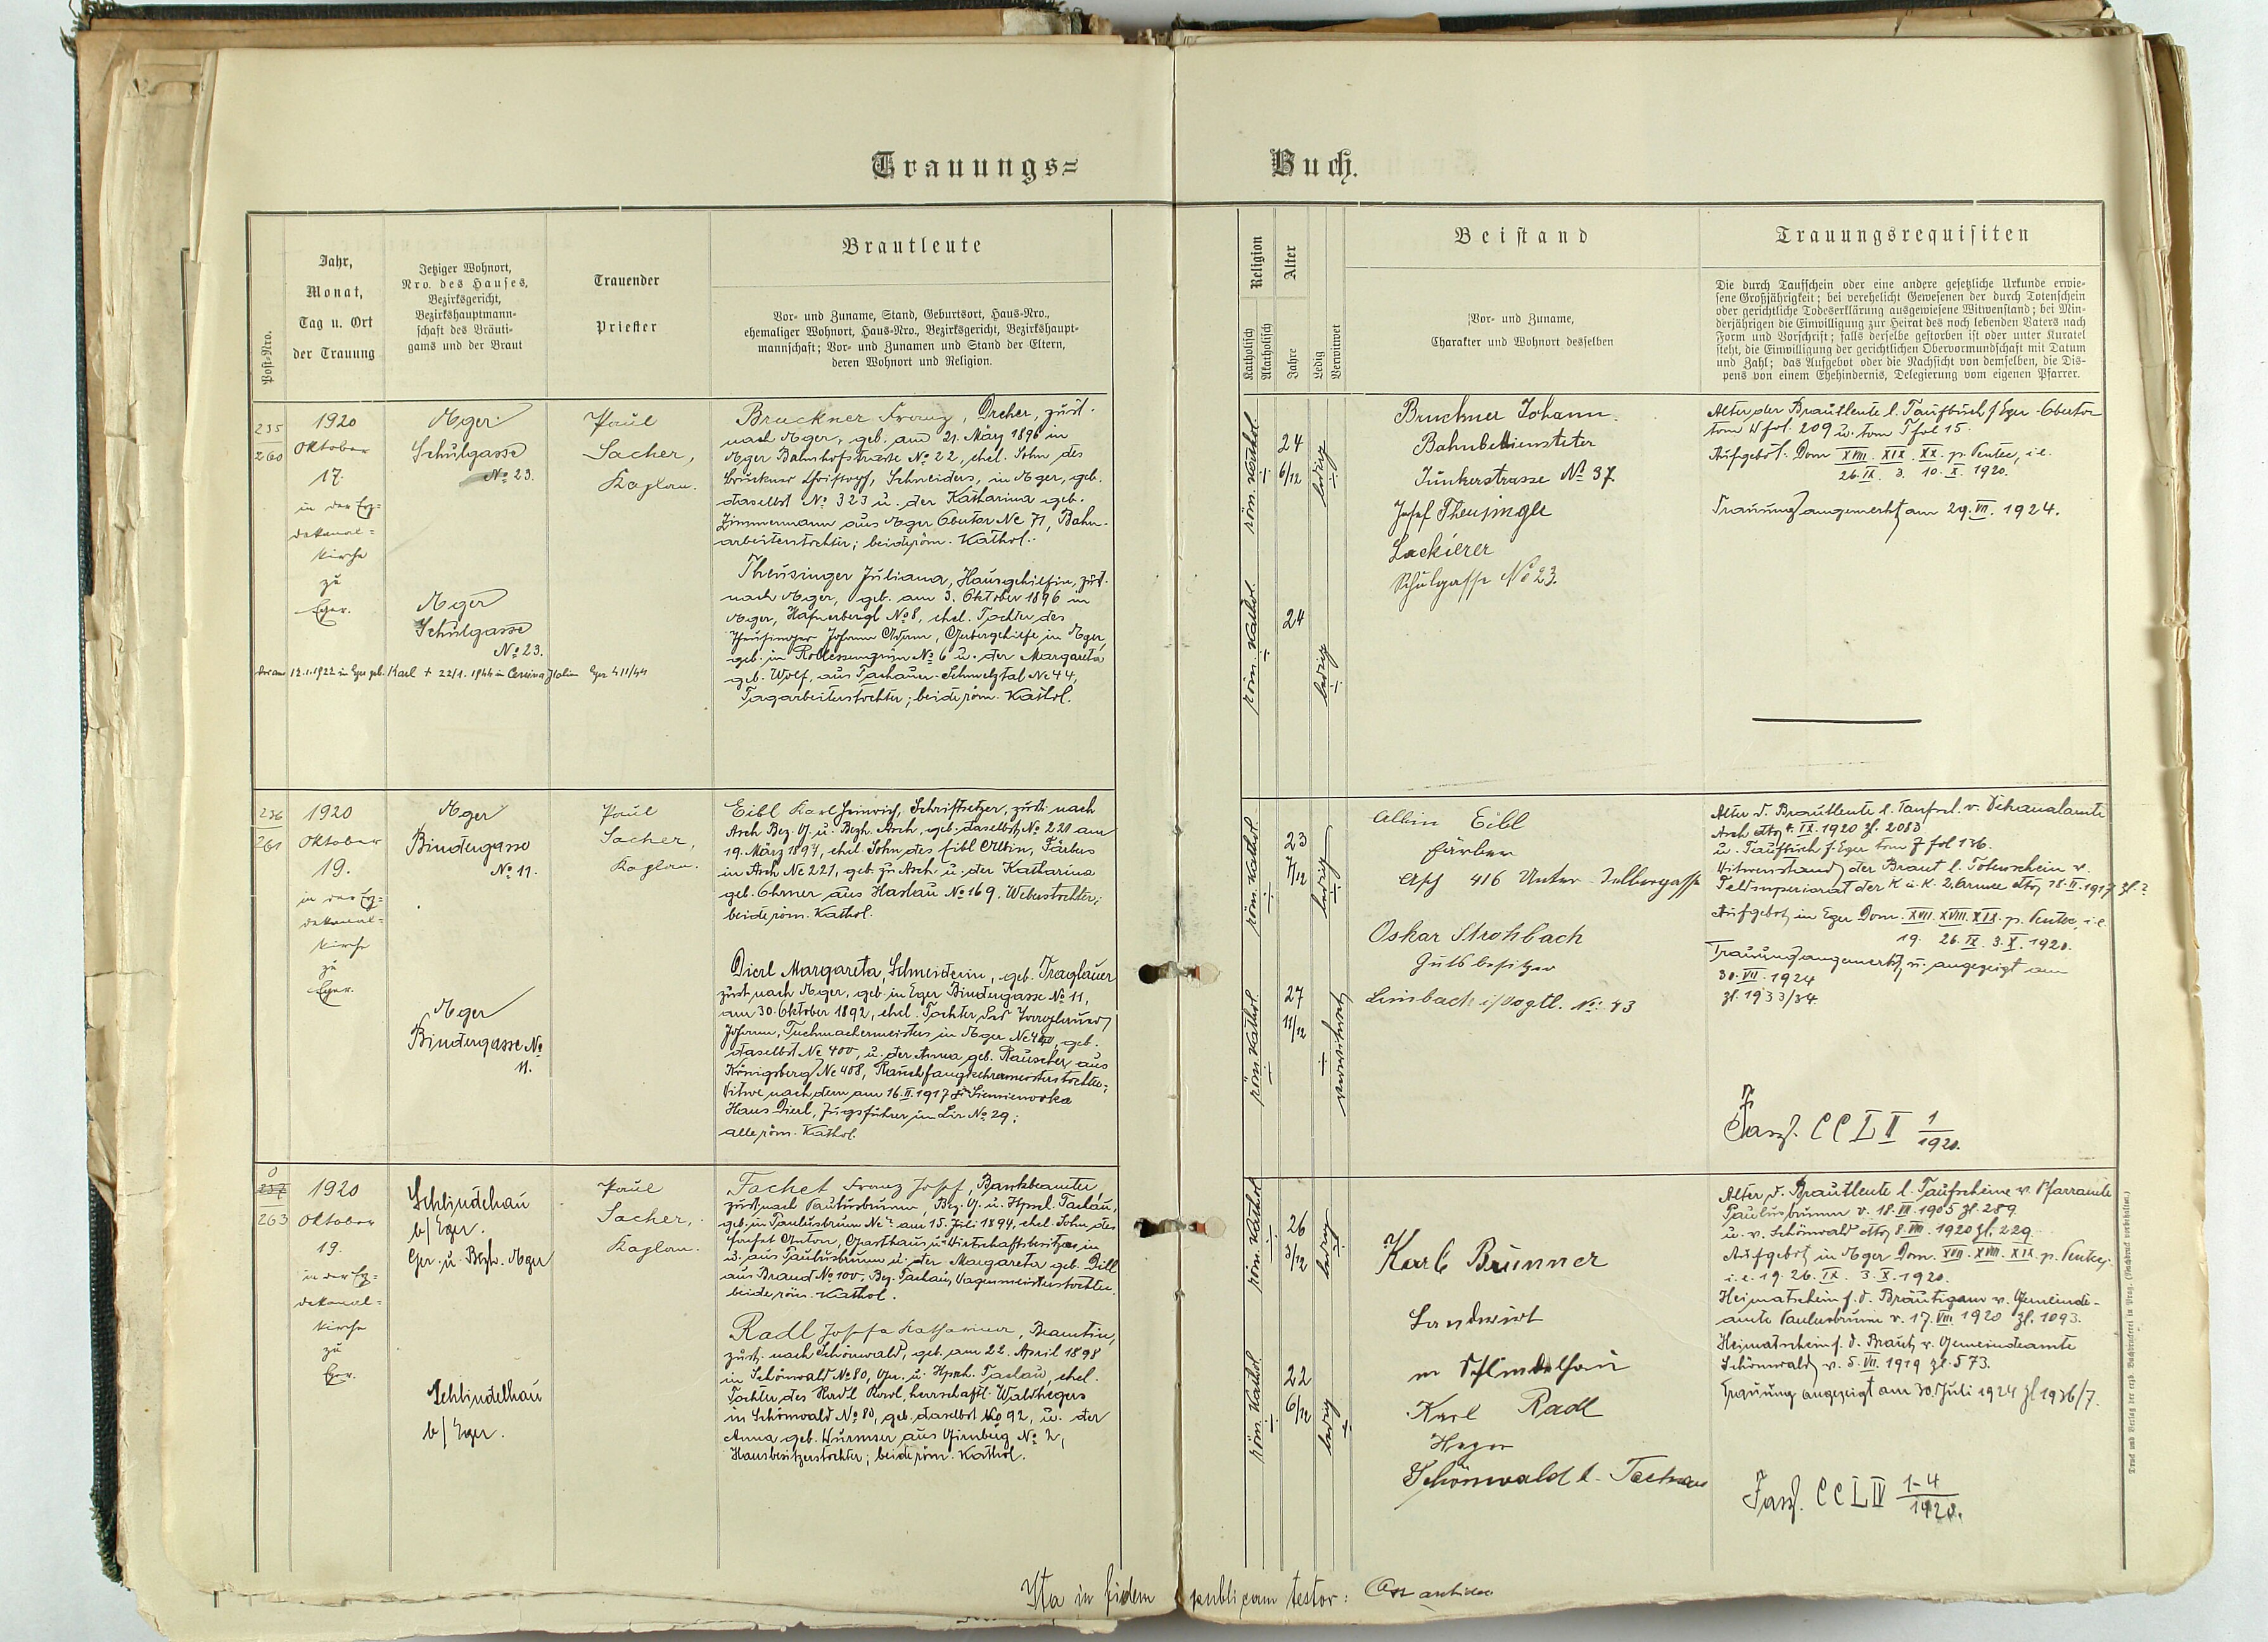 Trauungs=
Buch.
Post-Nro.
Jahr,
Monat,
Tag u. Ort
der Trauung
Jetziger Wohnort,
Nro. des Hauses,
Bezirksgericht,
Bezirkshauptmann-
schaft des Bräuti-
gams und der Braut
Trauender
Priester
Brautleute
Vor- und Zuname, Stand, Geburtsort, Haus-Nro.,
ehemaliger Wohnort, Haus-Nro., Bezirksgericht, Bezirkshaupt-
mannschaft; Vor- und Zunamen und Stand der Eltern,
deren Wohnort und Religion.
Religion
Katholisch
Akatholisch
Alter
Jahre
Ledig
Verwitwet
Beistand
Vor- und Zuname,
Charakter und Wohnort desselben
Trauungsrequisiten
Die durch Taufschein oder eine andere gesetzliche Urkunde erwie-
sene Großjährigkeit; bei verehelicht Gewesenen der durch Totenschein
oder gerichtliche Todeserklärung ausgewiesene Witwenstand; bei Min-
derjährigen die Einwilligung zur Heirat des noch lebenden Vaters nach
Form und Vorschrift; falls derselbe gestorben ist oder unter Kuratel
steht, die Einwilligung der gerichtlichen Obervormundschaft mit Datum
und Zahl; das Aufgebot oder die Nachsicht von demselben, die Dis-
pens von einem Ehehindernis, Delegierung vom eigenen Pfarrer.
235
260
1920
Oktober
17.
in der Erz=
dekanal=
kirche
zu
Eger.
Eger
Schulgasse
No 23.
Eger
Schulgasse
No 23.
Paul
Sacher,
Kaplan.
Bruckner Franz, Dreher, zust.
nach Eger, geb. am 21. März 1896 in
Eger Bahnhofstrasse No 22, ehel. Sohn des
Bruckner Christoph, Schneiders, in Eger, geb.
daselbst No 323 u. der Katharina geb.
Zimmermann aus Eger Obertor No 71, Bahn-
arbeiterstochter; beide röm. Kathol.
Theusinger Juliana, Hausgehilfin, zust.
nach Eger, geb. am 3. Oktober 1896 in
Eger, Hafnerbergl No 8, ehel. Tochter des
Theusinger Johann Adam, in Eger,
geb. in No 6 u. der Margareta
geb. Wolf, aus Tachauer-Schmelztal No 44,
Tagarbeiterstochter; beide röm. Kathol.
12.1.1922 in Eger geb. Karl + 22/1. 1944 in Italien Eger 411/44
röm. Kathol.
24
6/12
ledig
röm. Kathol.
24
ledig
Bruckner Johann.
Bahnbediensteter
Junkerstrasse No 37
Josef Theusinger
Lackierer
Schulgasse No 23.
Alter der Brautleute l. Taufbuch f. Eger-Obertor
tom W fol. 209 u. tom T fol 15.
Aufgebot: Dom XVIII. XIX. XX. p. Pentec, i.e.
26. IX. 3. 10. X. 1920.
Trauung angemerkt am 29. VII. 1924.
236
261
1920
Oktober
19.
in der Erz=
dekanal=
kirche
zu
Eger.
Eger
Bindergasse
No 11.
Eger
Bindergasse No
11.
Paul
Sacher,
Kaplan.
Eibl Karl Heinrich, Schriftsetzer, zust. nach
Asch Bez. G. u. Bezh. Asch, geb. daselbst No 221 am
19. März 1897, ehel. Sohn des Eibl Albin, Färbers
in Asch No 221, geb. zu Asch u. der Katharina
geb. aus Haslau No 169. Weberstochter;
beide röm. Kathol.
Dierl Margareta, Schneiderin, geb. Traglauer
zust. nach Eger, geb. in Eger Bindergasse No 11,
am 30. Oktober 1892, ehel. Tochter des Traglauer
Johann, Tuchmachermeisters in Eger No 400, geb.
daselbst No 400, u. der Anna geb. Rauscher, aus
Königsberg No 408, Rauchfangkehrermeisterstochter;
Witwe nach dem am 16. II. 1917
Hans Dierl, Zugsführer im No 29;
alle röm. Kathol.
röm. Kathol.
23
7/12
ledig
röm. Kathol.
27
11/12
verwitwet
Albin Eibl
Färber
Asch 416 Untere Selbergasse
Oskar Strohbach
Gutsbesitzer
Limbach i/Vogtl. No: 43
Alter d. Brautleute l. Taufsch. v. Dekanalamte
Asch dto 4. IX. 1920 zl. 2083
u. Taufbuch f. Eger tom 7 fol 136.
Witwenstand der Braut l. Totenschein v.
der K. u. K. 2. Armee dto 18. II. 1917 zl.?
Aufgebot in Eger Dom. XVII. XVIII. XIX. p. Pentec, i.e.
19. 26. IX. 3. X. 1920.
Trauung angemerkt u. angezeigt am
30. VII. 1924
zl. 1933/34.
Fasz. CCLII 1/1920.
0
237
263
1920
Oktober
19.
in der Erz=
dekanal=
kirche
zu
Eger.
Schlindelhau
b/Eger.
Ger. u. Bezh. Eger
Schlindelhau
b/Eger.
Paul
Sacher,
Kaplan.
Fachet Franz Josef, Bankbeamter,
zust. nach Paulusbrunn, Bez. G. u. Hpm. Tachau,
geb. in Paulusbrunn No ? am 15. Juli 1894, ehel. Sohn des
Fachet Anton, Gasthaus u. Wirtschaftsbesitzers in
u. aus Paulusbrunn u. der Margareta geb. Dill
aus Brand No 100, Bez. Tachau, Wagnermeisterstochter.
beide röm. Kathol.
Radl Josefa Katharina, Beamtin,
zust. nach Schönwald, geb. am 22. April 1898
in Schönwald No 80, Ger. u. Tachau, ehel.
Tochter des Radl Karl, herrschaftl. Waldhegers
in Schönwald No 80, geb. daselbst No 92, u. der
Anna geb. Wurmser aus No 2,
Hausbesitzerstochter; beide röm. Kathol.
röm. Kathol.
26
3/12
ledig
röm. Kathol.
22
6/12
ledig
Karl Brunner
Landwirt
in Schlindelhau
Karl Radl
Heger
Schönwald b. Tachau
Alter d. Brautleute l. Taufscheine v. Pfarramte
Paulusbrunn v. 18. VII. 1905 zl. 289
u. v. Schönwald dto 8. VIII. 1920 zl. 229
Aufgebot in Eger Dom. XVII. XVIII. XIX. p. Pentec.
i.e. 19. 26. IX. 3. X. 1920.
Heimatschein f. d. Bräutigam v. Gemeinde-
amte Paulusbrunn v. 17. VIII. 1920 zl. 1093.
Heimatschein f. d. Braut v. Gemeindeamte
Schönwald v. 5. VII. 1919 zl. 573.
Trauung angezeigt am 30. Juli 1924 zl 1936/7.
Fasz. CCLIV 1-4/1920.
Ita in fidem publicam testor:
Druck und Verlag der erzb. Buchdruckerei in Prag. (Nachdruck vorbehalten.)